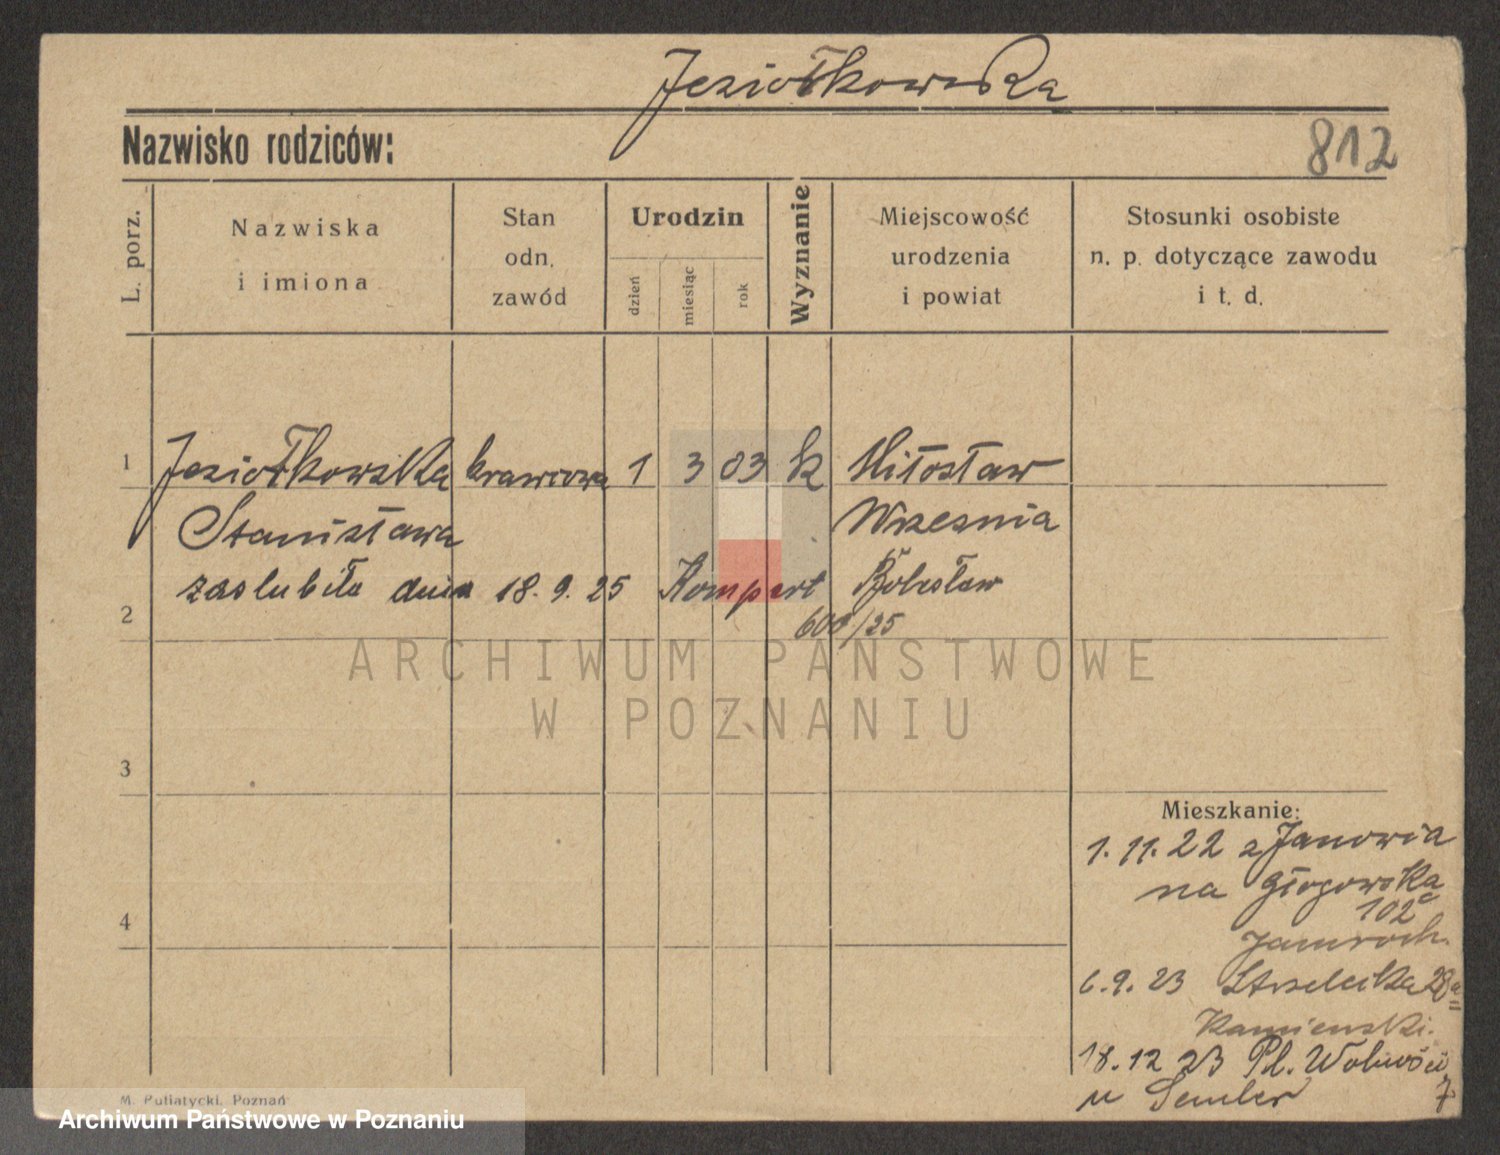 Jeziołkowska
Nazwisko rodziców:
812
L. porz.
Nazwiska
i imiona
Stan
odn.
zawód
Urodzin
dzień
miesiąc
rok
Wyznanie
Miejscowość
urodzenia
i powiat
Stosunki osobiste
n. p. dotyczące zawodu
i t. d.
1 Jeziołkowska krawcowa 1 3 03 k Miłosław
Stanisława Wrzesnia
zaslubiła dnia 18. 9. 25 Kompert Bolesław
2
608/25
ARCHIWUM PAŃSTWOWE
W POZNANIU
3
Mieszkanie:
1. 11. 22 z Janowia
na Głogowska
102a
4
Jamroch.
6. 9. 23 Strzelecka 28a
Kamienski.
18. 12 23 Pl. Wolności
u Semler 7
M. Putiatycki, Poznań
Archiwum Państwowe w Poznaniu